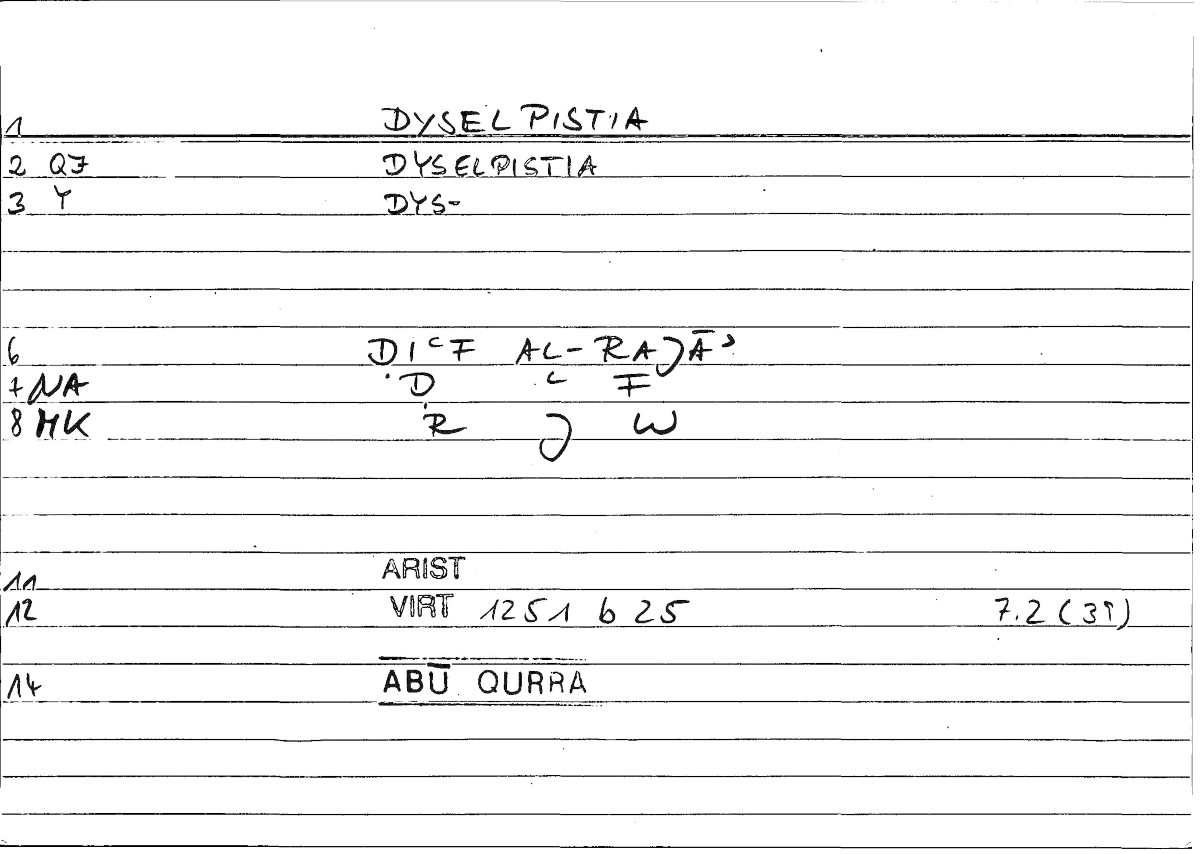 1 DYSELPISTIA
2 QF DYSELPISTIA
3 Y DYS-
6 ḌIʿF AL-RAJĀʾ
7 NA Ḍ ʿ F
8 MK R J W
11 ARIST
12 VIRT 1251 b 25 7.2 (3↑)
14 ABŪ QURRA